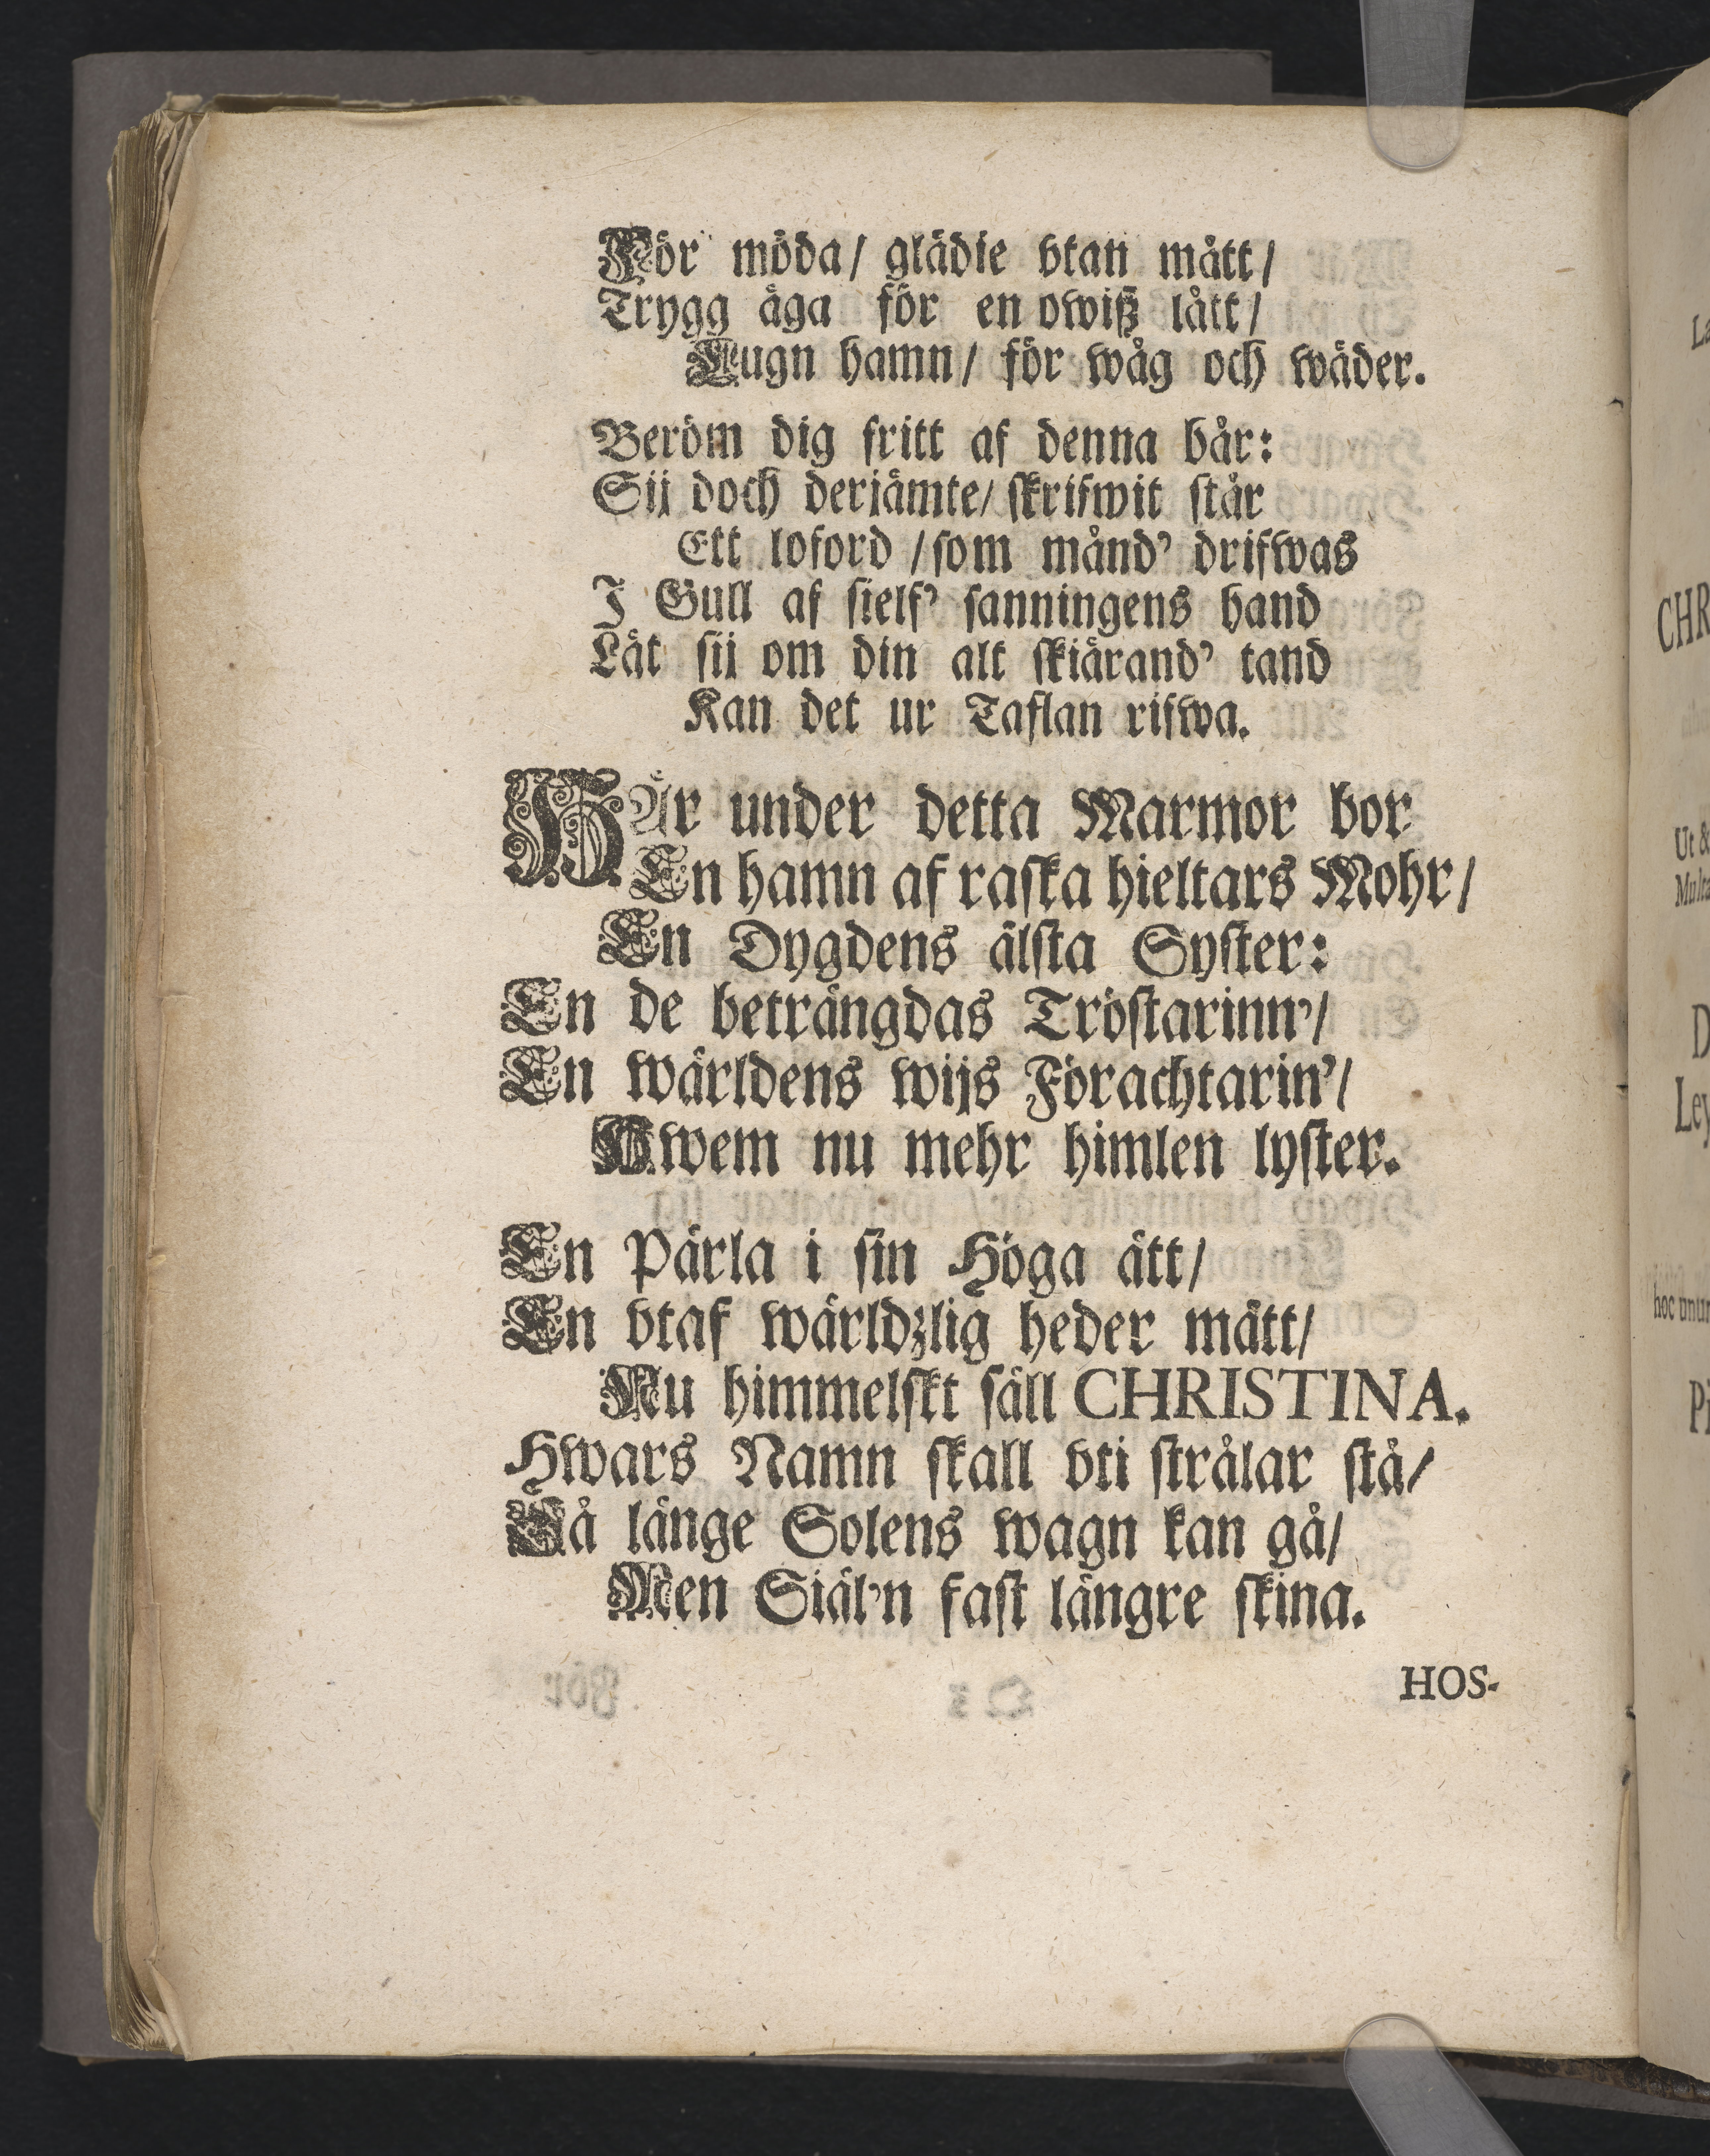 För möda/ glädie vtan mått/
Trygg äga för en owiß lått/
Lugn hamn/ för wåg och wäder.
Beröm dig fritt af denna bår:
Sij doch derjämte/ skrifwit står
Ett loford /som månd' drifwas
I Gull af sielf' sanningens hand
Låt sij om din alt skiärand' tand
Kan det ur Taflan rifwa.
HÄr under detta Marmor bor
En hamn af raska hieltars Mohr/
En Dygdens älsta Syster:
En de beträngdas Tröstarinn'/
En wärldens wijs Förachtarin'/
Hwem nu mehr himlen lyster.
En Pärla i sin Höga ätt/
En vtaf wärldzlig heder mätt/
Nu himmelskt säll CHRISTINA.
Hwars Namn skall vti strålar stå/
Så länge Solens wagn kan gå/
Men Siäl'n fast längre skina.
HOS-
La
CHR
Ut &
D
Ley
hoc unu